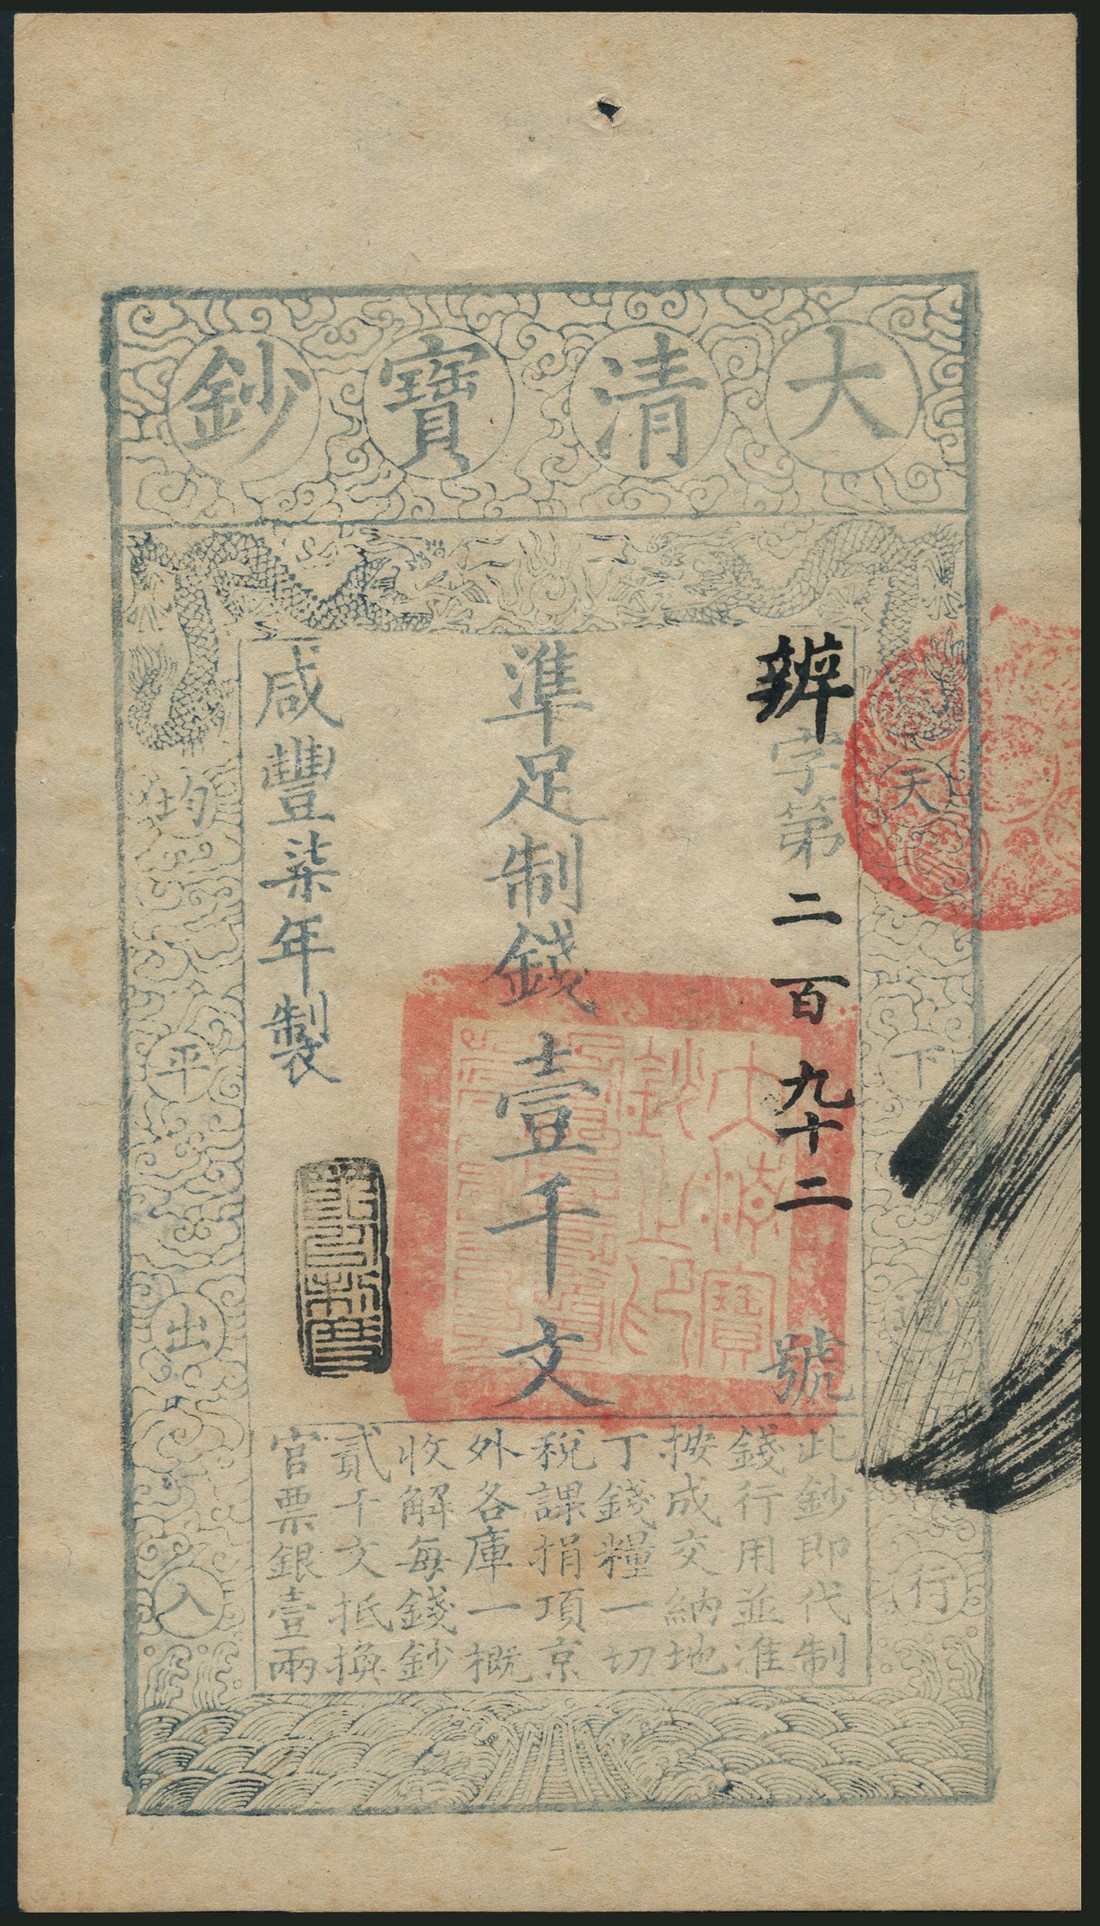 大清寶鈔
天下通行
均平出入
辨字第二百九十二號
準足制錢壹千文
咸豐柒年製
大清寶鈔之印
此鈔即代制
錢行用並准
按成交納地
丁錢糧一切
稅課捐項京
外各庫一概
收解每錢鈔
貳千文抵換
官票銀壹兩